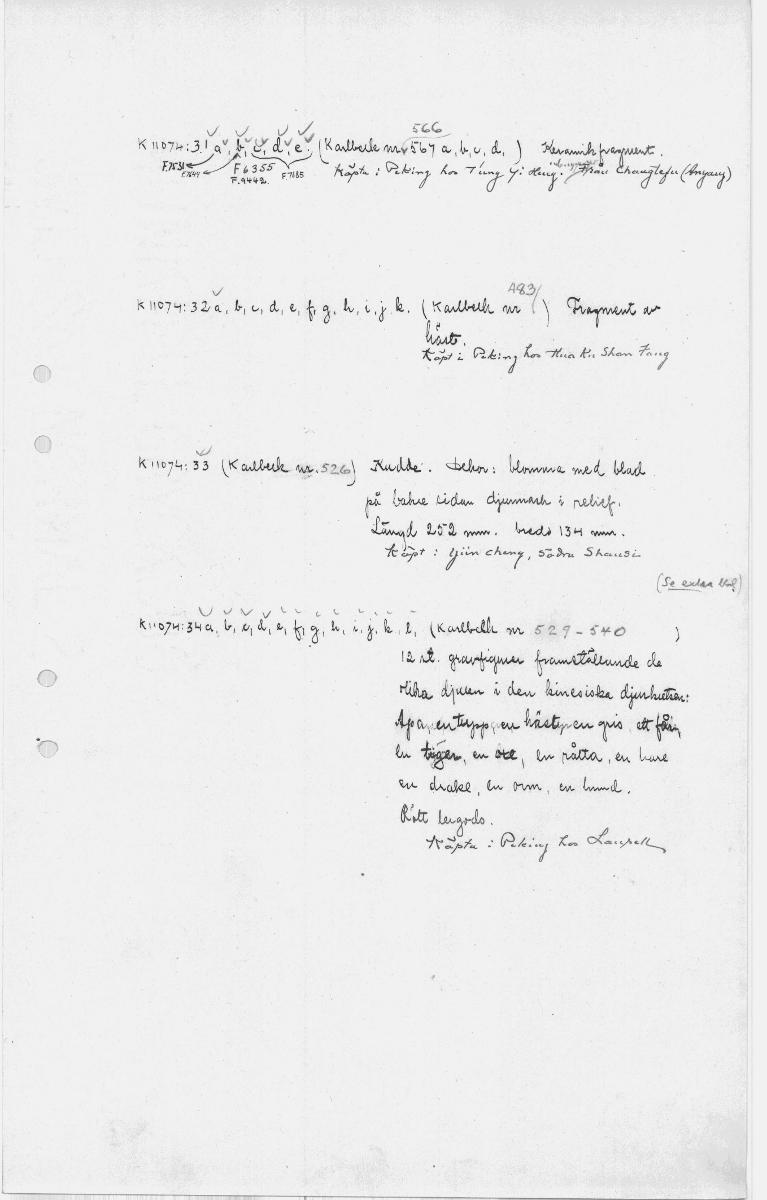 566
K 11074:31 a, b, c, d, e. (Karlbeck nr 567 a, b, c, d, ) Keramikfragment.
F.7531 F.7644 F 6355 F.9442. F 7185 Köpta i Peking hos T'ung Yi Heng. Från Changtefu (Anyang)
483
K 11074:32 a, b, c, d, e, f, g, h, i, j, k. (Karlbeck nr ) Fragment av
häst.
Köpt i Peking hos Hua Ku Shan Fang
K 11074:33 (Karlbeck nr. 526) Kudde. Dekor: blomma med blad
på bakre sidan djurmask i relief.
Längd 252 mm. bredd 134 mm.
Köpt i Yün cheng, Södra Shansi
(Se extra blad)
K 11074:34 a, b, c, d, e, f, g, h, i, j, k, l, (Karlbeck nr 529-540 )
12 st. gravfigurer framställande de
olika djuren i den kinesiska djurkretsen:
Apa, en tupp, en häst, en gris, ett får,
en tiger, en oxe, en råtta, en hare
en drake, en orm, en hund.
Rött lergods.
Köpta i Peking hos Laurell